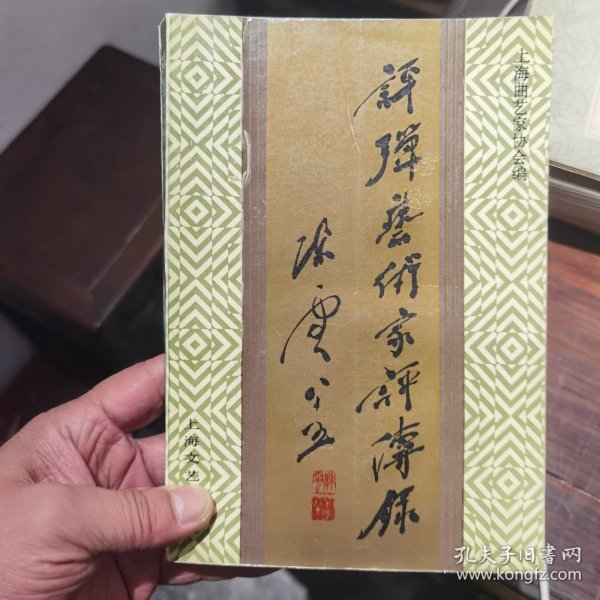 上海曲艺家协会编
評彈藝術家評傳錄
陈雲 八五
上海文艺
孔夫子旧书网
www.kongfz.com